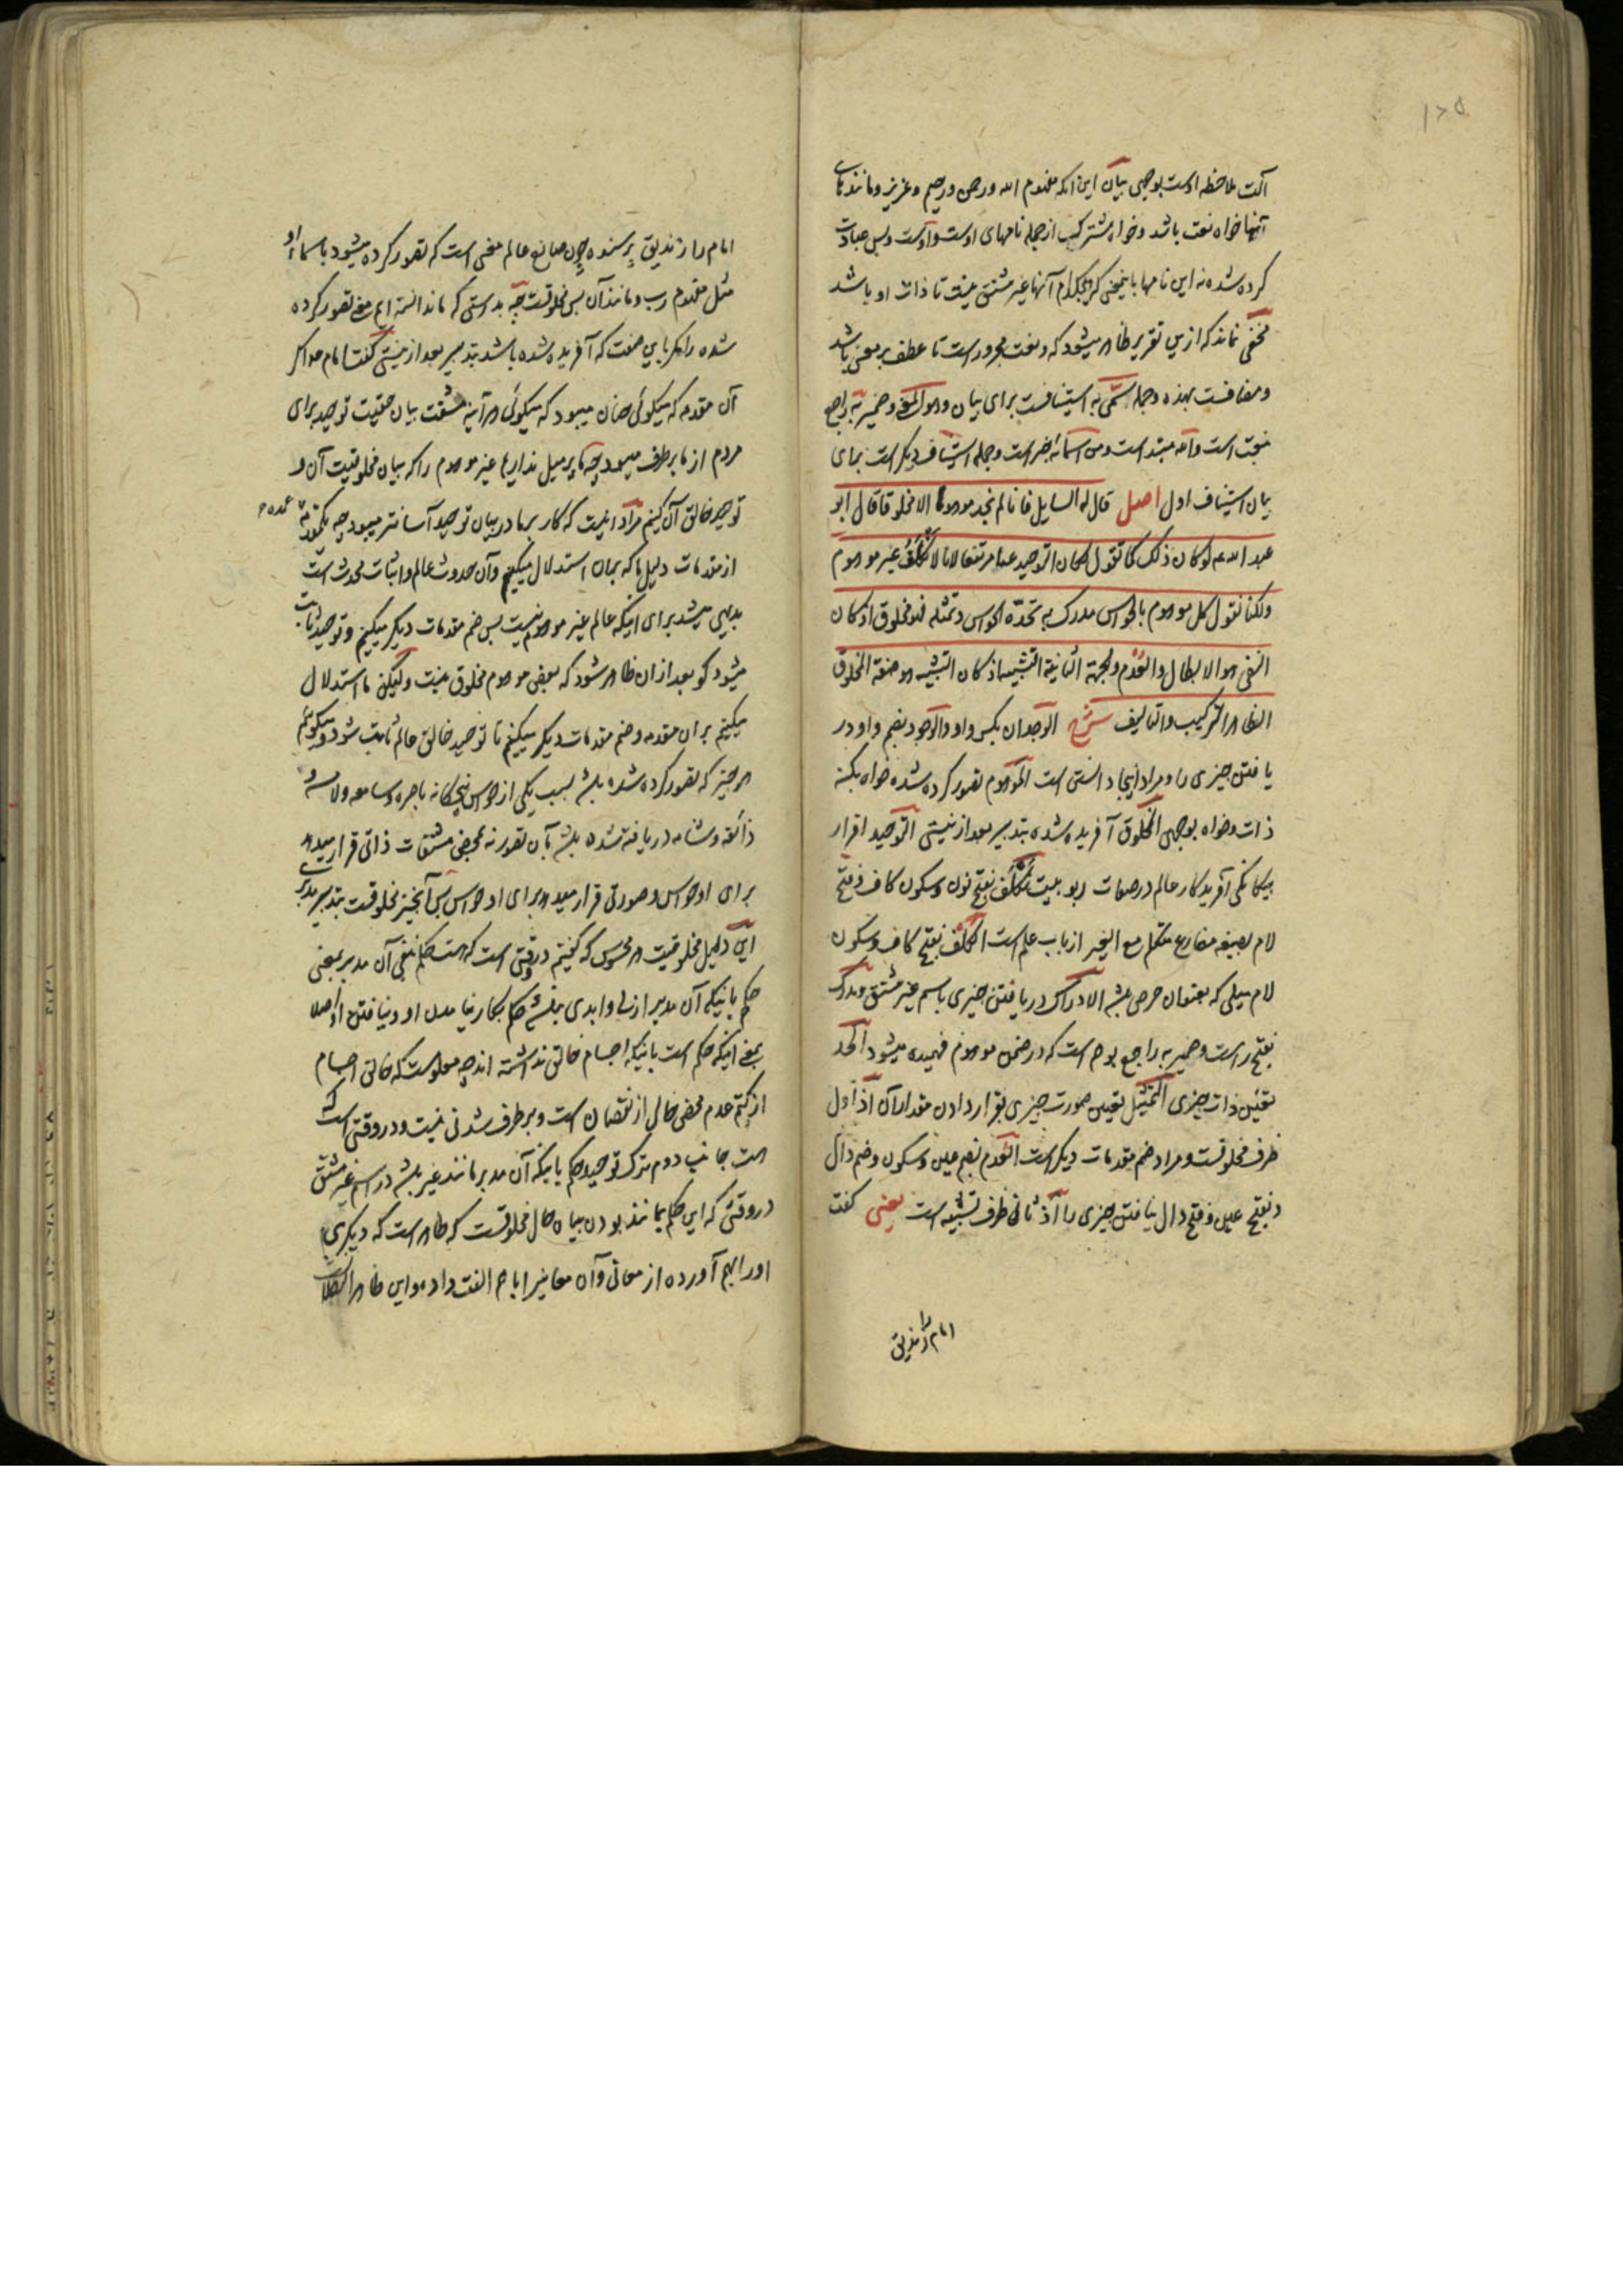 ۱۷۵
آلت ملاحظه اوست بوجهی بیان این آنکه مفهوم الله و رحمن و رحیم و عزیز و مانندهای
آنها خواه نعت باشد و خواه مشترک از جمله نامهای اوست و اوست و بس عبادت
کرده شده نه این نامها باینمعنی که هیچکدام آنها غیر مشتق نیست تا ذات او باشد
مخفی نماند که ازین تقریر ظاهر میشود که و نعت مجرور است تا عطف بر معنی باشد
و مضافست بهذه و جمله سمّی به استینافست برای بیان و هو المعنی و ضمیر به راجع
بنعت است و الله مبتد است و من اسمائه خبر است و جمله استیناف دیگر است برای
بیان استیناف اول اصل قال له السایل فانا لم نجد موهوما الا مخلوقا قال ابو
عبد الله عه لو کان ذلک کما تقول لکان التوحید عنا مرتفعا لانا لا نَکْلَفُ غیر موهوم
و لکنا نقول کل موهوم بالحواس مدرک به تحدّه الحواس و تمثله فهو مخلوق اذ کان
النفی هو الابطال و العُدْم و الجهة الثانیة التشبیه اذ کان التشبیه هو صفة المخلوق
الظاهر الترکیب و التالیف شرح الوجدان بکسر واو و الوجود بضم واو در
یافتن چیزی را و مراد اینجا دانستن است الموهوم تصور کرده شده خواه بکنه
ذات و خواه بوجهی المخلوق آفریده شده بتدبیر بعد از نیستی التوحید اقرار
بیکانکی آفریدکار عالم در صفات ربوبیت نَکْلَف بفتح نون و سکون کاف و فتح
لام بصیغه مضارع متکلم مع الغیر از باب علم است الکلف بفتح کاف و سکون
لام میلی که بعنوان حرص باشد الادراک دریافتن چیزی باسم غیر مشتق و مدرک
بفتح راست و ضمیر به راجع بوهم است که در ضمن موهوم فهمیده میشود الحد
تعیین ذات چیزی التمثیل تعیین صورت چیزی بقرار دادن مقدار آن اذ اول
ظرف مخلوقست و مراد ضم مقدمات دیگر است العُدْم بضم عین و سکون و ضم دال
و بفتح عین و فتح دال نیافتن چیزی را اذ ثانی ظرف تشبیه است یعنی گفت
امام را زندیق
امام را زندیق پرسنده چون صانع عالم معنی است که تصور کرده میشود باسماء او
مثل مفهوم رب و مانند آن پس مخلوقست چه بدرستی که ما ندانسته ایم معنی تصور کرده
شده را مگر باین صفت که آفریده شده باشد بتدبیر بعد از نیستی گفت امام عه اگر
آن مقدمه که میگوئی چنان میبود که میگوئی هر آینه مشقت بیان حقیت توحید برای
مردم از ما بر طرف میبود چه ما پر میل نداریم غیر موهوم را که بیان مخلوقیت آن و
توحید خالق آن کنیم مراد اینست که کار بر ما در بیان توحید آسانتر میبود چه یکمقدمه عمده
از مقدمات دلیل ما که بدان استدلال میکنیم و آن حدوث عالم و اثبات محدث است
بدیهی میشد برای اینکه عالم غیر موهوم نیست پس ضم مقدمات دیگر میکنیم و توحید ثابت
میشود گو بعد از ان ظاهر شود که بعضی موهوم مخلوق نیست و لیکن ما استدلال
میکنیم بر ان مقدمه و ضم مقدمات دیگر میکنیم تا توحید خالق عالم ثابت شود و میگوییم
هر چیز که تصور کرده شده باشد بسبب یکی از حواس پنجکانه باصره و سامعه و لامسه و
ذائقه و شامه دریافته شده باشد بآن تصور نه بمحض مشتقات ذاتی قرار میدهد
برای او حواس و صورتی قرار میدهد برای او حواس پس آنچیز مخلوقست بتدبیر مدبری
این دلیل مخلوقیت هر محسوس که گفتیم در وقتی است که هست حکم بنفی آن مدبر بمعنی
حکم بانیکه آن مدبر ازلی و ابدی نباشد حکم بکار نیامدن او و نیافتن او اصلا
بمعنی اینکه حکم است بانیکه اجسام خالق نداشته اند چه معلوست که خالق اجسام
از کتم عدم محض خالی از نقصان است و بر طرف شدنی نیست و در وقتی است که
هست جانب دوم ترک توحید حکم بانیکه آن مدبر مانند غیر باشد در اسم غیر مشتق
در وقتی که این حکم بمانند بودن بیان حال مخلوقست که ظاهر است که دیگری
او را بهم آورده از معانی و آن معانیرا با هم الفت داده و این ظاهر البطلان